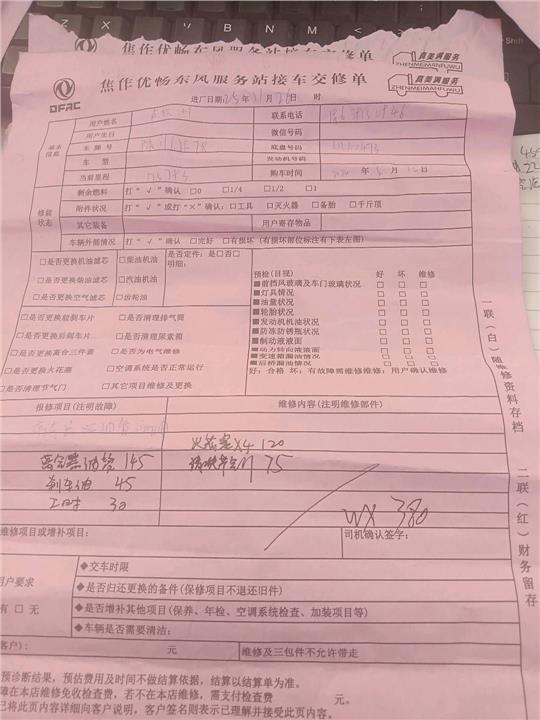 焦作优畅东风服务站接车交修单
真美满服务
ZHENMEIMANFUWU
焦作优畅东风服务站接车交修单
真美满服务
ZHENMEIMANFUWU
DFAC
进厂日期: 25 年 11 月 时
用户姓名 联系电话
基本信息
用户生日 微信号码
车牌号 底盘号码
车型 发动机号码
当前里程 购车时间 年 月 日
修前状态
剩余燃料 打“√”确认 □0 □1/4 □1/2 □1
附件状况 打“√”或打“×”确认:□工具 □灭火器 □备胎 □千斤顶
其它装备 用户寄存物品
车辆外部情况 打“√”确认 □完好 □有损坏(有损坏部位标注有下表左图)
□是否更换机油滤芯 □柴油机油 是否定件:是□否□
明细:
□是否更换柴油滤芯 □汽油机油
□是否更换空气滤芯 □齿轮油
□是否更换前刹车片 □是否清理排气筒
□是否更换后刹车片 □是否清理尿素箱
□是否更换离合三件套 □是否为电气维修
□是否更换火花塞 □空调系统是否正常运行
□是否清理节气门 □其它项目维修及更换
预检(目视) 好 坏 维修
■前挡风玻璃及车门玻璃状况 □ □ □
■灯具情况 □ □ □
■油量状况 □ □ □
■轮胎状况 □ □ □
■发动机机油状况 □ □ □
■防冻防锈瓶状况 □ □ □
■制动液液面 □ □ □
■动力转向液液面 □ □ □
■变速箱漏油情况 □ □ □
■后桥漏油情况 □ □ □
好:合格 坏:有故障需维修维修:用户确认维修
报修项目(注明故障) 维修内容(注明维修部件)
火花塞X4 120
离合泵油管 145 75
刹车油 45
工时 30
WX 380
维修项目或增补项目: 司机确认签字:
用户要求
有 □ 无
◆交车时限
◆是否归还更换的备件(保修项目不退还旧件)
◆是否增补其他项目(保养、年检、空调系统检查、加装项目等)
◆车辆是否需要清洁:
客户): 元 维修及三包件不允许带走
预诊断结果,预估费用及时间不做结算依据,结算以结算单为准。
障在本店维修免收检查费,若不在本店维修,需支付检查费 元。
已将此页内容详细向客户说明,客户签名则表示已理解并接受此页内容。
一联(白)随
修资料存档
二联(红)财务留存
Shift